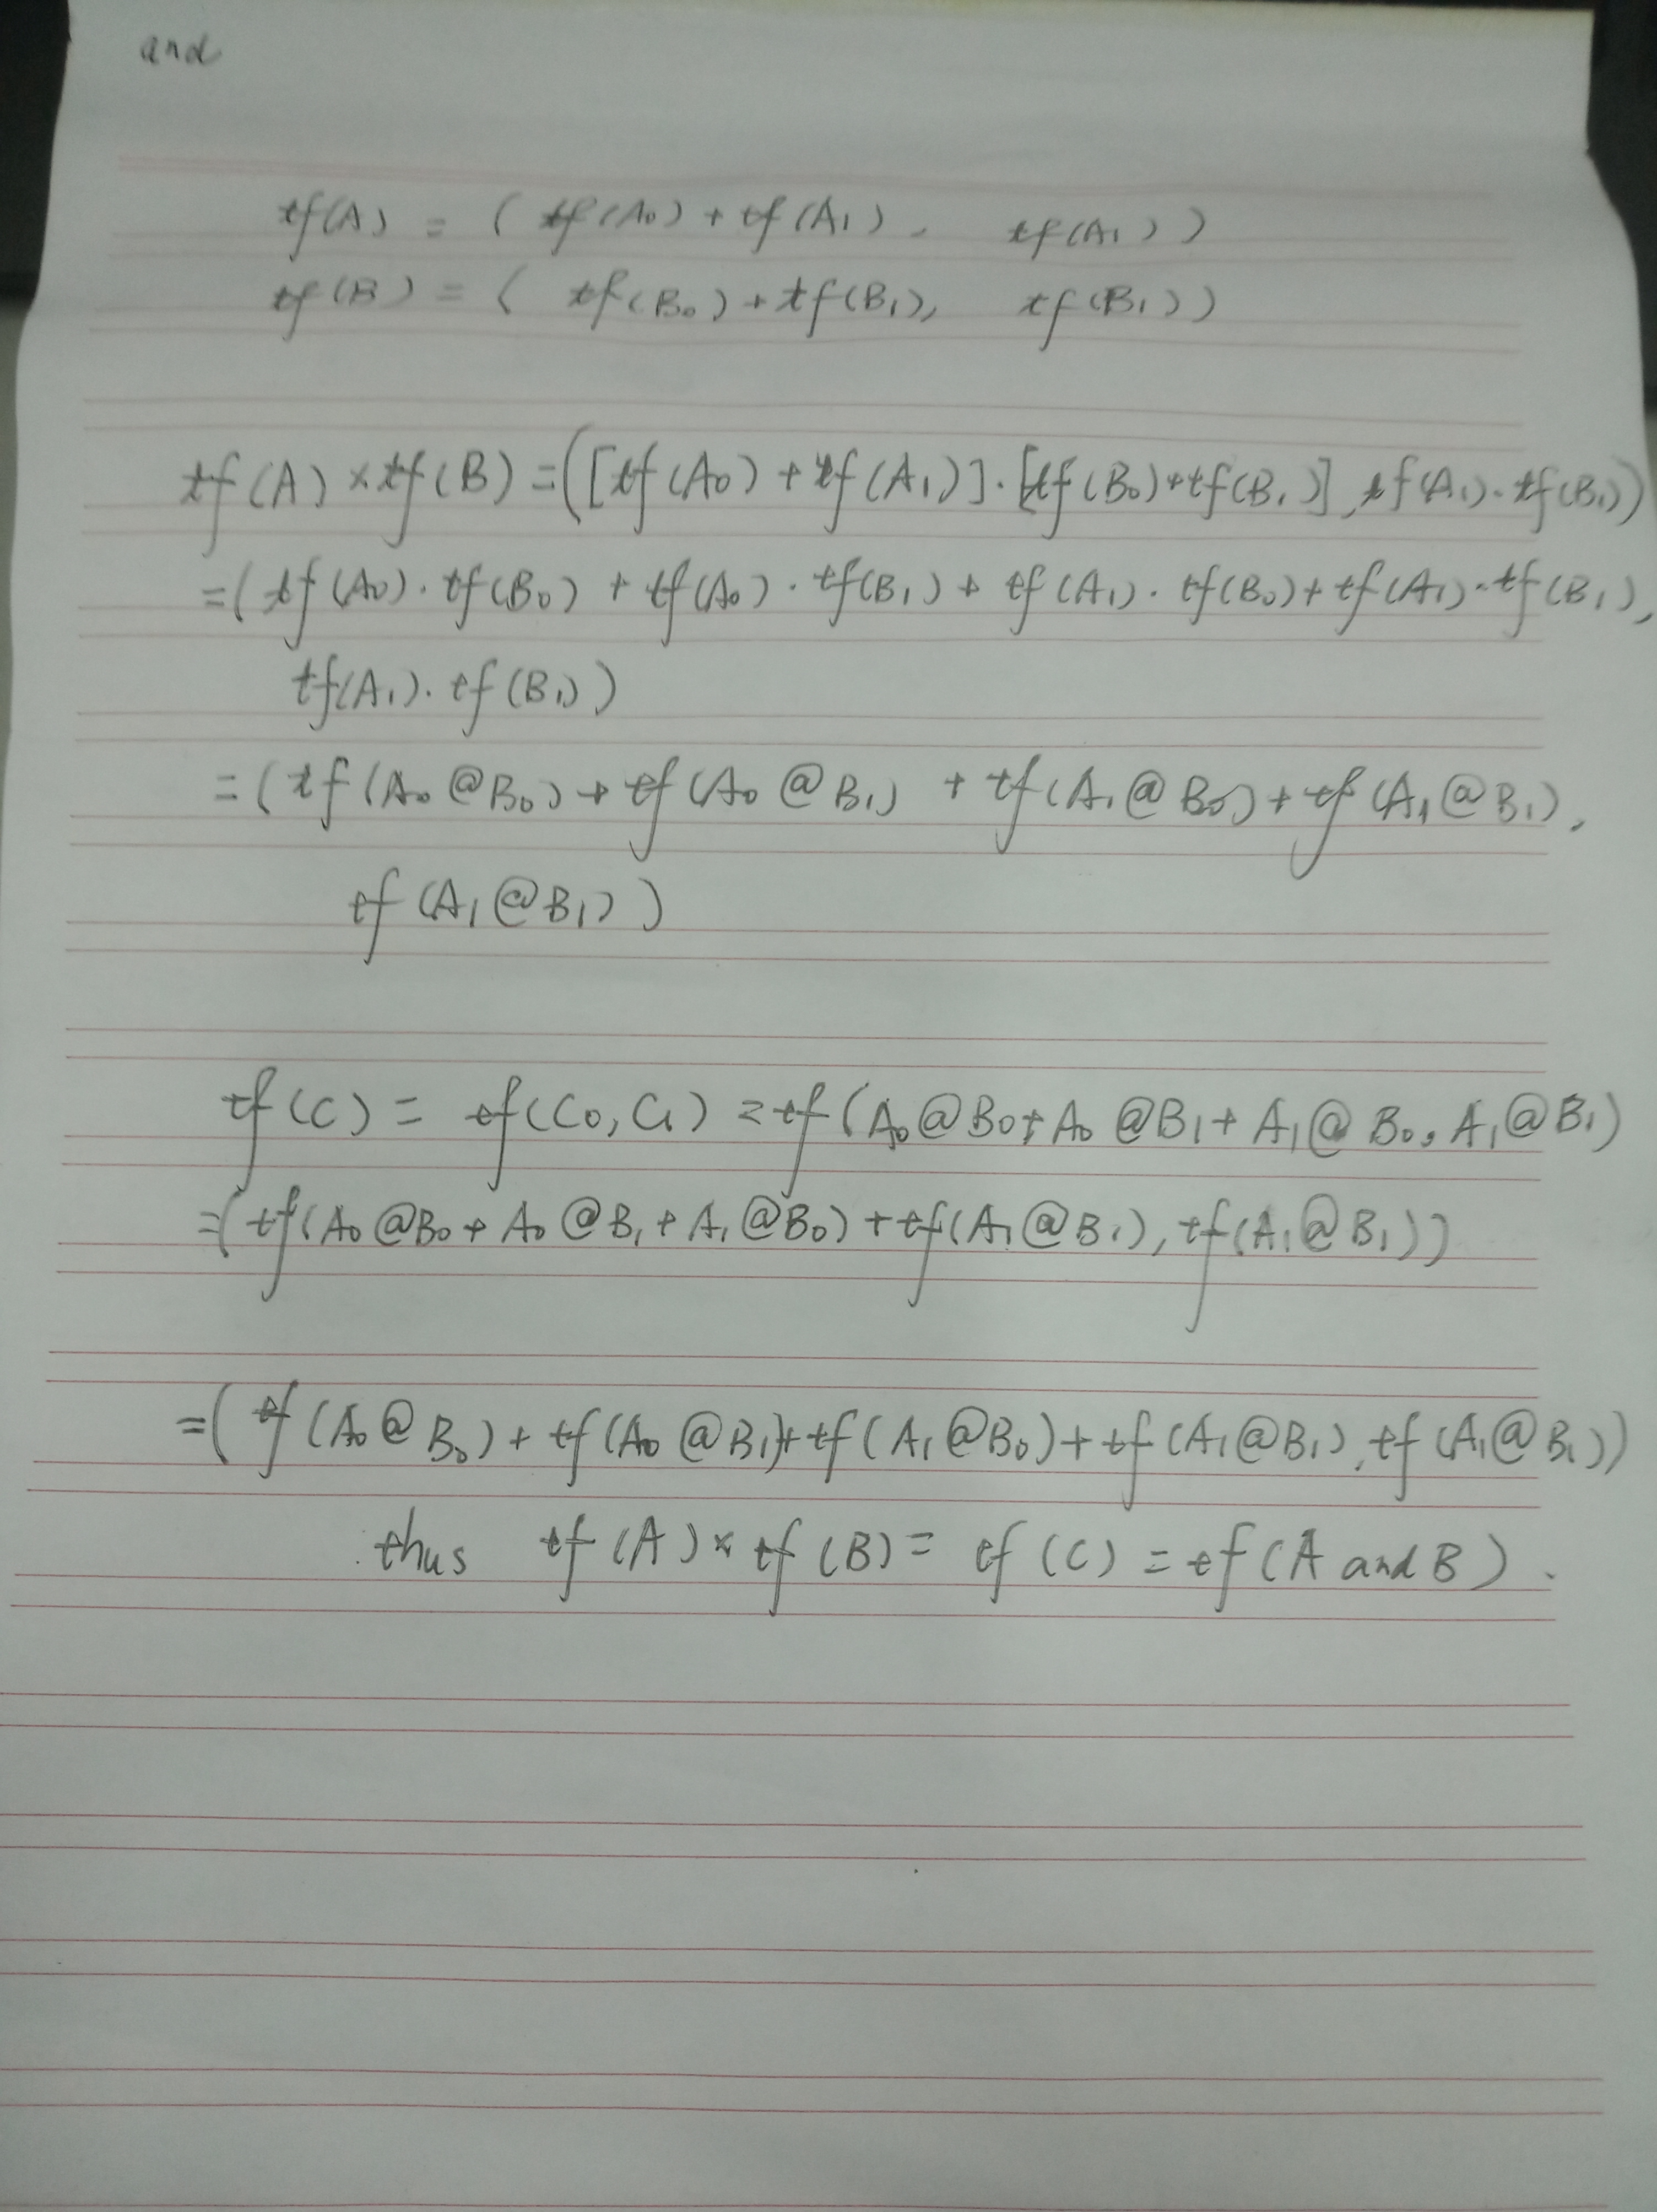 and
tf(A) = ( tf(A₀) + tf(A₁), tf(A₁))
tf(B) = ( tf(B₀) + tf(B₁), tf(B₁))
tf(A) × tf(B) = ([tf(A₀) + tf(A₁)] · [tf(B₀) + tf(B₁)], tf(A₁) · tf(B₁))
= ( tf(A₀) · tf(B₀) + tf(A₀) · tf(B₁) + tf(A₁) · tf(B₀) + tf(A₁) · tf(B₁),
tf(A₁) · tf(B₁))
= ( tf(A₀@B₀) + tf(A₀@B₁) + tf(A₁@B₀) + tf(A₁@B₁),
tf(A₁@B₁))
tf(C) = tf(C₀, C₁) = tf(A₀@B₀ + A₀@B₁ + A₁@B₀, A₁@B₁)
= ( tf(A₀@B₀ + A₀@B₁ + A₁@B₀) + tf(A₁@B₁), tf(A₁@B₁))
= ( tf(A₀@B₀) + tf(A₀@B₁) + tf(A₁@B₀) + tf(A₁@B₁), tf(A₁@B₁))
thus tf(A) × tf(B) = tf(C) = tf(A and B).